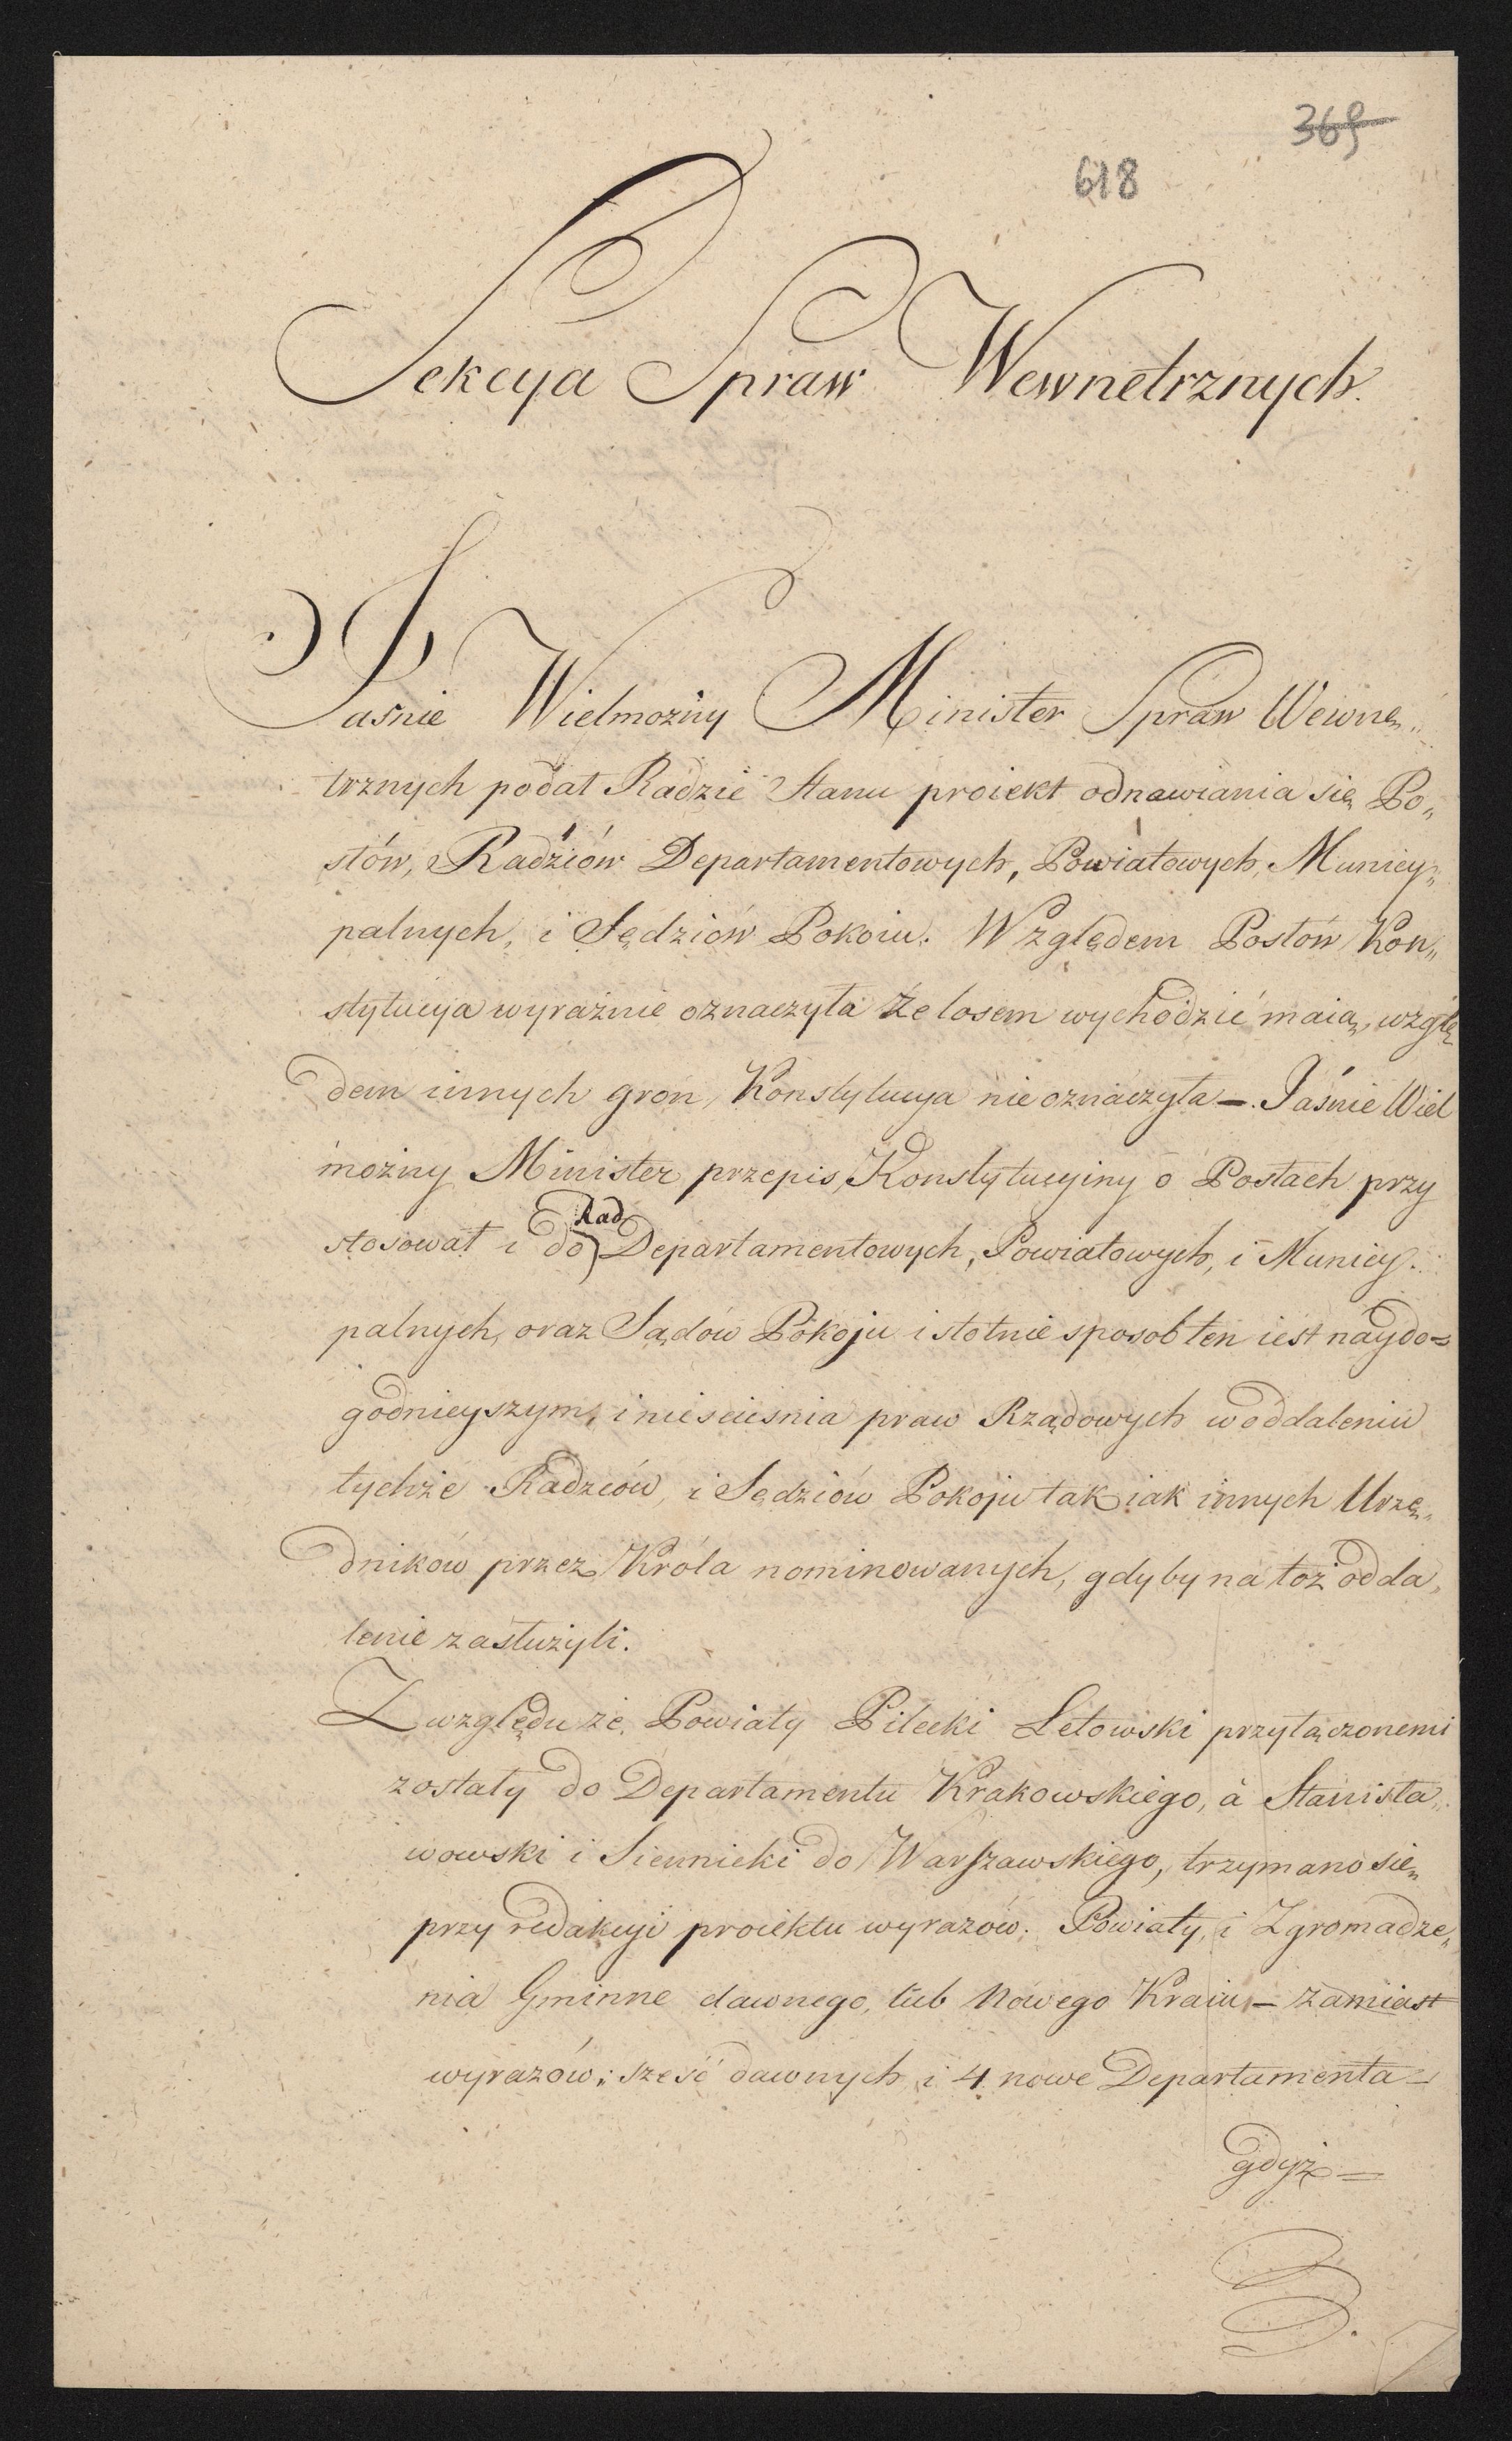 369
618
Sekcya Spraw Wewnetrznych.
Jaśnie Wielmożny Minister Spraw Wewnę„
trznych podał Radzie Stanu proiekt odnawiania się Po„
słów, Radźiów Departamentowych, Powiatowych, Municy„
palnych, i Sędziów Pokoiu. Względem Posłów Kon„
stytucya wyraźnie oznaczyła że losem wychodzić maią, wzglę
dem innych gron, Konstytucya nie oznaczyła –. Jaśnie Wiel
możny Minister przepis Konstytucyiny o Posłach przy
Rad
stosował i do Departamentowych, Powiatowych, i Municy.
palnych, oraz Sądów Pokoju istotnie sposob ten iest naydo=
godnieyszym, i nieściesnia praw Rządowych w oddaleniu
tychże Radzców, i Sędziów Pokoju tak iak innych Urzę„
dników przez Króla nominowanych, gdyby na toż odda„
lenie zasłużyli.
Z względu że Powiaty Pilecki Lelowski przyłączonemi
zostały do Departamentu Krakowskiego, à Stanisła„
wowski i Siennicki do Warszawskiego, trzymano się
przy redakcyi proiektu wyrazów: Powiaty, i Zgromadze„
nia Gminne dawnego, lub Nowego Kraiu, – zamiast
wyrazów: sześć dawnych i 4 nowe Departamenta –
gdyż =